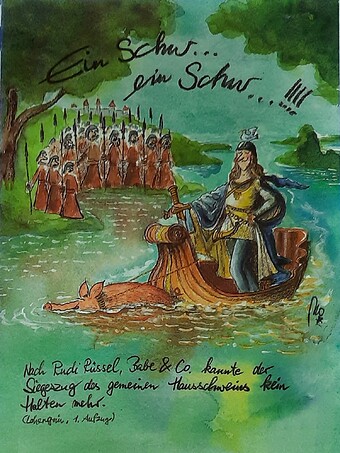 Ein Schw...
ein Schw...!!!!
Nach Rudi Rüssel, Babe & Co. kannte der
Siegeszug des gemeinen Hausschweins kein
Halten mehr.
(Lohengrin, 1. Aufzug)